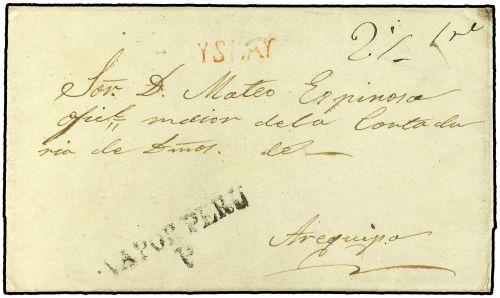 YSLAY
Sor. D. Mateo Espinosa
ofiel. maior de la Contadu
ria de Dmos. de
VAPOR PERU
P
Arequipa